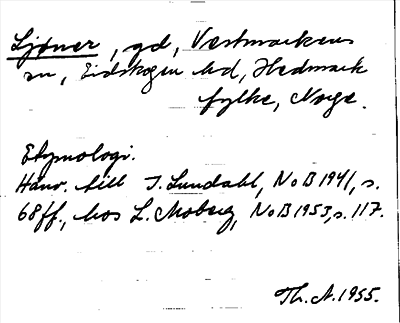 Ljøner, gd, Vestmarkens
sn, Eidskogen hd, Hedmark
fylke, Norge.
Etymologi.
Hänv. till I. Lundahl, NoB 1941, s.
68ff., hos L. Moberg, NoB 1953, s. 117.
Th. A. 1955.